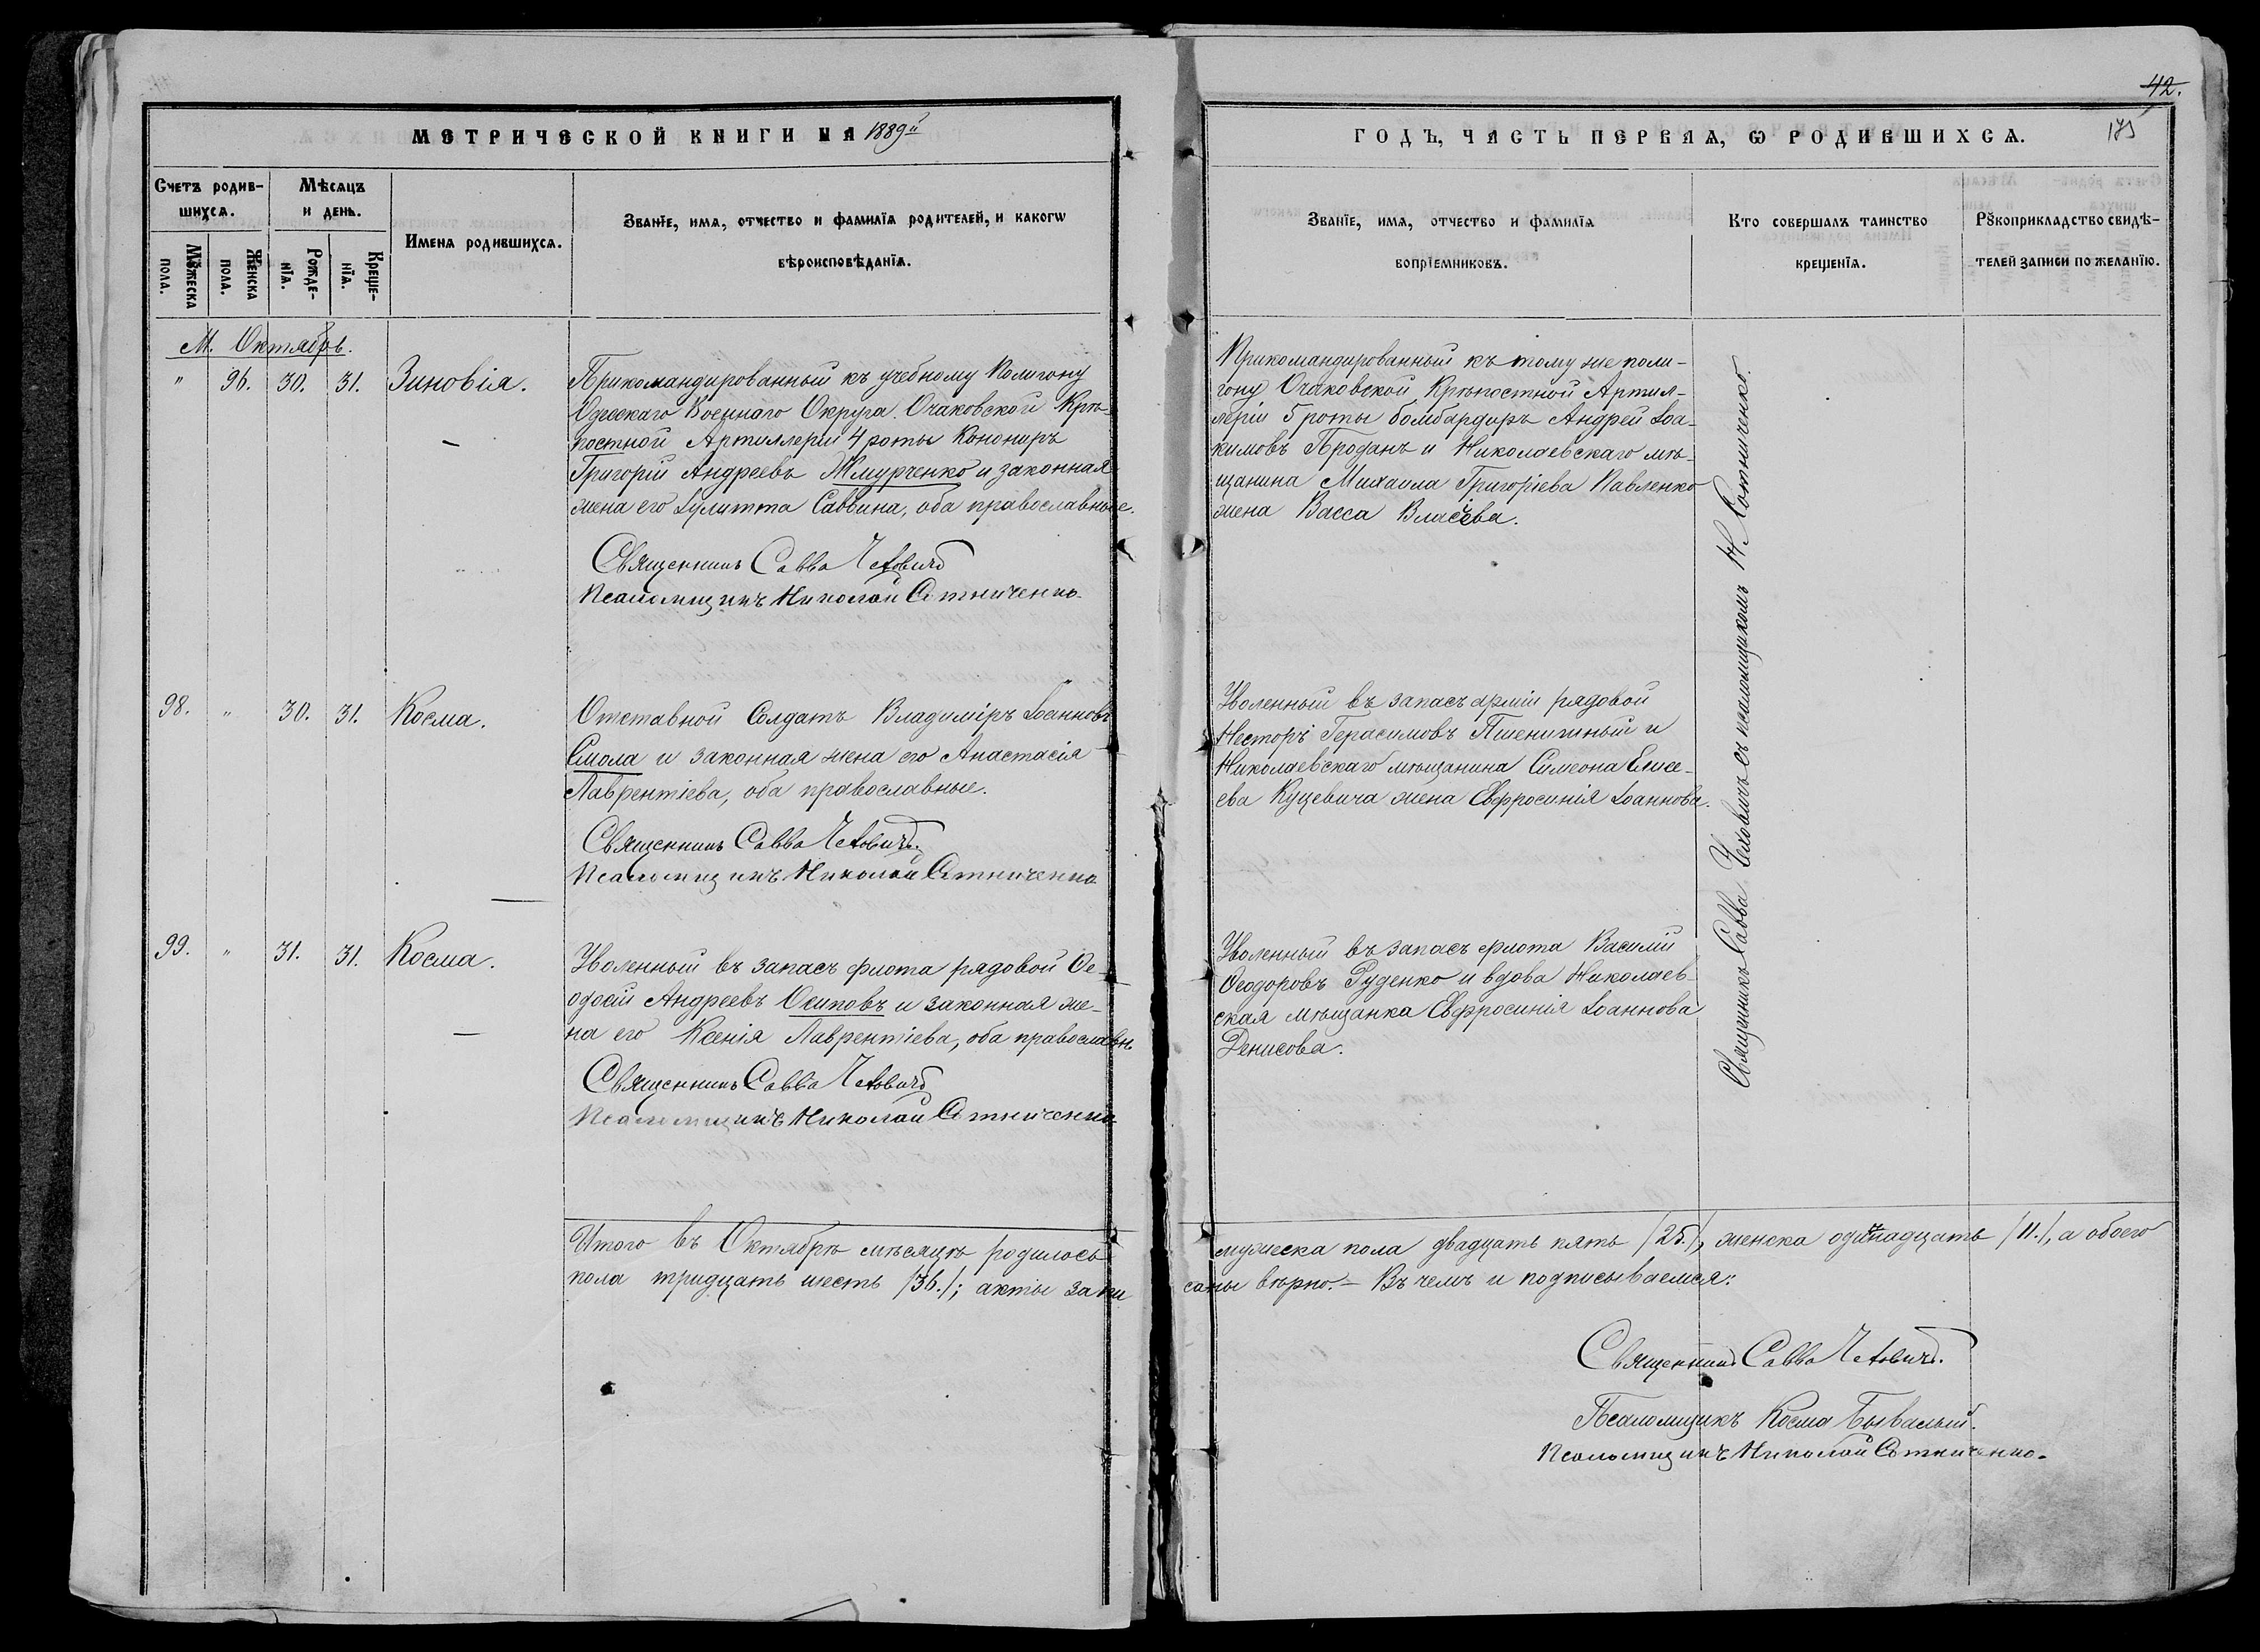 42.
МЕТРИЧЕСКОЙ КНИГИ НА 1889й
ГОДЪ, ЧАСТЬ ПЕРВАЯ, Ѡ РОДИВШИХСѦ.
175
Счетъ родив-
шихсѧ.
Мѣсѧцъ
и день.
Мꙋжеска
пола.
Женска
пола.
Рожде-
нїѧ.
Креще-
нїѧ.
Имена родившихсѧ.
Званїе, имѧ, отчество и фамилїѧ родителей, и какогѡ
вѣроисповѣданїѧ.
Званїе, имѧ, отчество и фамилїѧ
воспрїемниковъ.
Кто совершалъ таинство
крещенїѧ.
Рꙋкоприкладство свидѣ-
телей записи по желанїю.
М. Октябрь.
" 96. 30. 31. Зиновія.
Прикомандированный къ учебному Полигону
Одесскаго Военнаго Округа Очаковской Крѣ-
постной Артиллеріи 4 роты Канониръ
Григорій Андреевъ Жмурченко и законная
жена его Іулитта Саввина, оба православные.
Священникъ Савва Чехович
Псаломщикъ Николай Сотниченко
Прикомандированный къ тому же поли-
гону Очаковской Крѣпостной Артил-
леріи 5 роты бомбардиръ Андрей Іоа-
кимовъ Проданъ и Николаевскаго мѣ-
щанина Михаила Григоріева Павленко
жена Васса
98. " 30. 31. Косма.
Отставной Солдатъ Владиміръ Іоанновъ
Смола и законная жена его Анастасія
Лаврентіева, оба православные.
Священникъ Савва Чеховичъ.
Псаломщикъ Николай Сотниченко
Уволенный въ запасъ арміи рядовой
Несторъ Герасимовъ Пшеничный и
Николаевскаго мѣщанина Симеона Елисе-
ева Куцевича жена Евфросинія Іоаннова.
99. " 31. 31. Косма.
Уволенный въ запасъ флота рядовой Ѳе-
одосій Андреевъ Осиповъ и законная же-
на его Ксенія Лаврентіева, оба православн
Священникъ Савва Чеховичъ
Псаломщикъ Николай Сотниченко
Уволенный въ запасъ флота Василій
Ѳеодоровъ Руденко и вдова Николаев-
ская мѣщанка Евфросинія Іоаннова
Денисова.
Священникъ Савва Чеховичъ съ псаломщикомъ Н. Сотниченко.
Итого въ Октябрѣ мѣсяцѣ родилось мужеска пола двадцать пять /25./, женска одинадцать /11./, а обоего
пола тридцать шесть /36./; акты записаны вѣрно. – Въ чемъ и подписываемся:
Священникъ Савва Чеховичъ.
Псаломщикъ Косма Бывалый.
Псаломщикъ Николай Сотниченко.